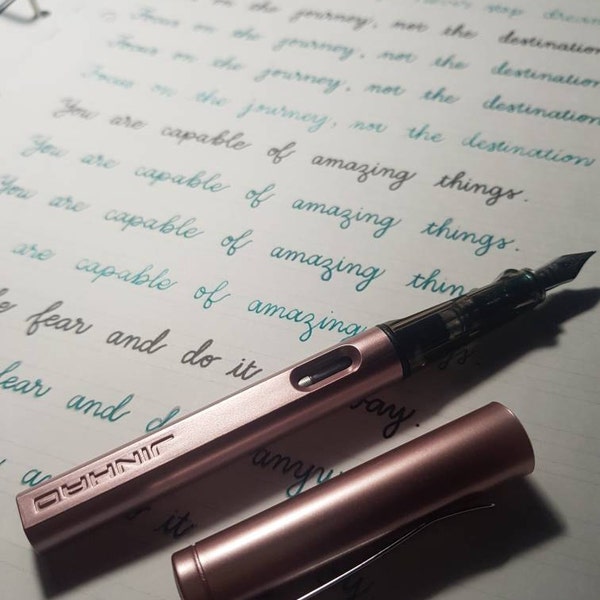 never stop dream
on the journey, not the destination
Focus on the journey, not the destination
Focus on the journey, not the destination
Focus on the journey, not the destination
You are capable of amazing things.
You are capable of amazing things.
You are capable of amazing thin
are capable of amazing gs.
fear and do it way.
fear and d anyw
it
JINHAO